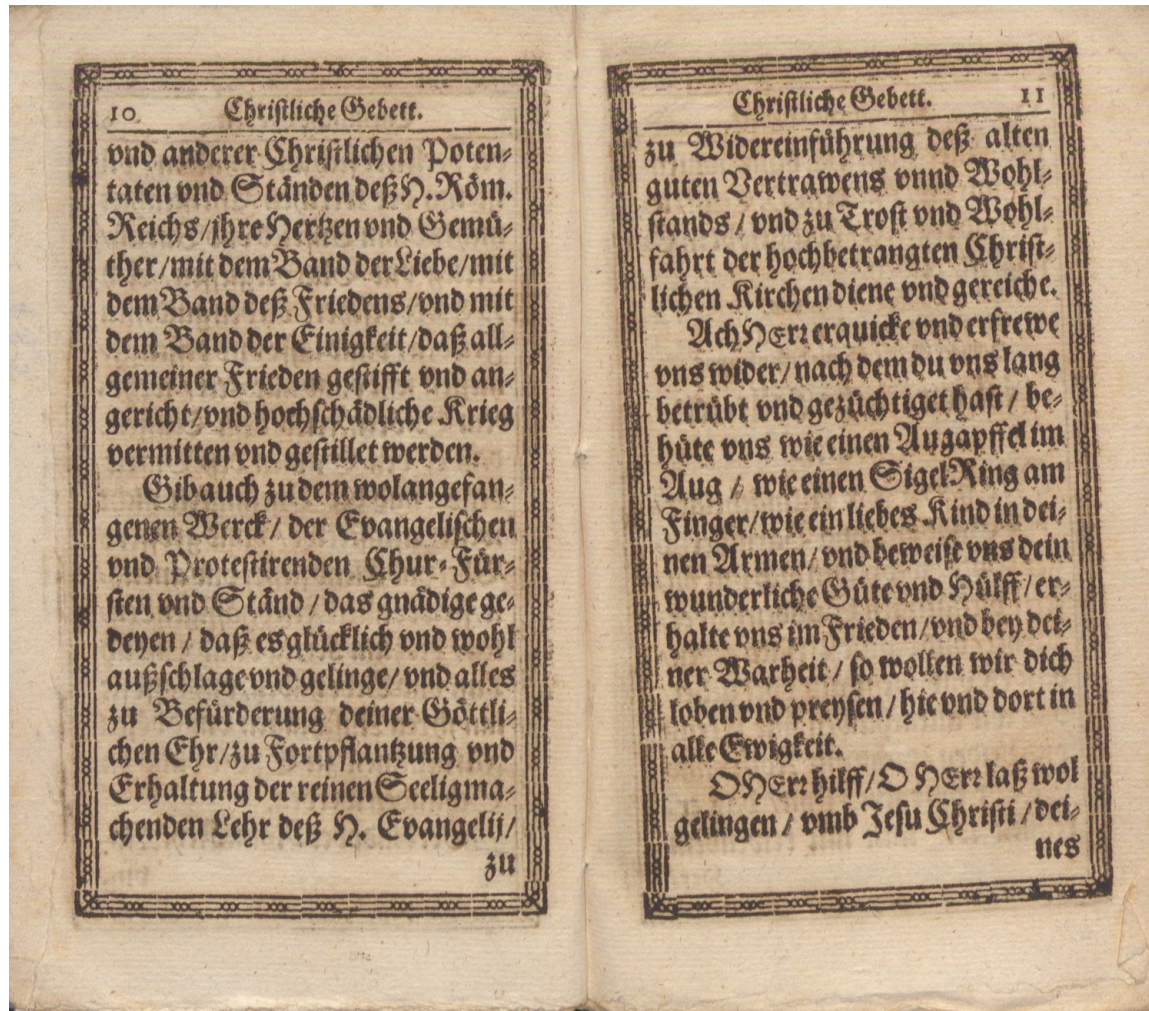 10 Christliche Gebett.
vnd anderer Christlichen Poten⸗
taten vnd Ständen deß H. Röm.
Reichs/jhre Hertzen vnd Gemü⸗
ther/mit dem Band der Liebe/mit
dem Band deß Friedens/vnd mit
dem Band der Einigkeit/daß all⸗
gemeiner Frieden gestifft vnd an⸗
gericht/vnd hochschädliche Krieg
vermitten vnd gestillet werden.
Gib auch zu dem wolangefan⸗
genen Werck/ der Evangelischen
vnd Protestirenden Chur⸗Für⸗
sten vnd Ständ / das gnädige ge⸗
deyen / daß es glücklich vnd wohl
außschlage vnd gelinge/ vnd alles
zu Befürderung deiner Göttli⸗
chen Ehr/zu Fortpflantzung vnd
Erhaltung der reinen Seeligma⸗
chenden Lehr deß H. Evangelij/
zu
Christliche Gebett. 11
zu Widereinführung deß alten
guten Vertrawens vnnd Wohl⸗
stands / vnd zu Trost vnd Wohl⸗
fahrt der hochbetrangten Christ⸗
lichen Kirchen diene vnd gereiche.
Ach HErr erquicke vnd erfrewe
vns wider/ nach dem du vns lang
betrübt vnd gezüchtiget hast / be⸗
hüte vns wie einen Augapffel im
Aug / wie einen SigelRing am
Finger/wie ein liebes Kind in dei⸗
nen Armen/ vnd beweise vns dein
wunderliche Güte vnd Hülff/ er⸗
halte vns im Frieden/vnd bey dei⸗
ner Warheit / so wollen wir dich
loben vnd preysen / hie vnd dort in
alle Ewigkeit.
O HErr hilff/ O HErr laß wol
gelingen / vmb Jesu Christi / dei⸗
nes